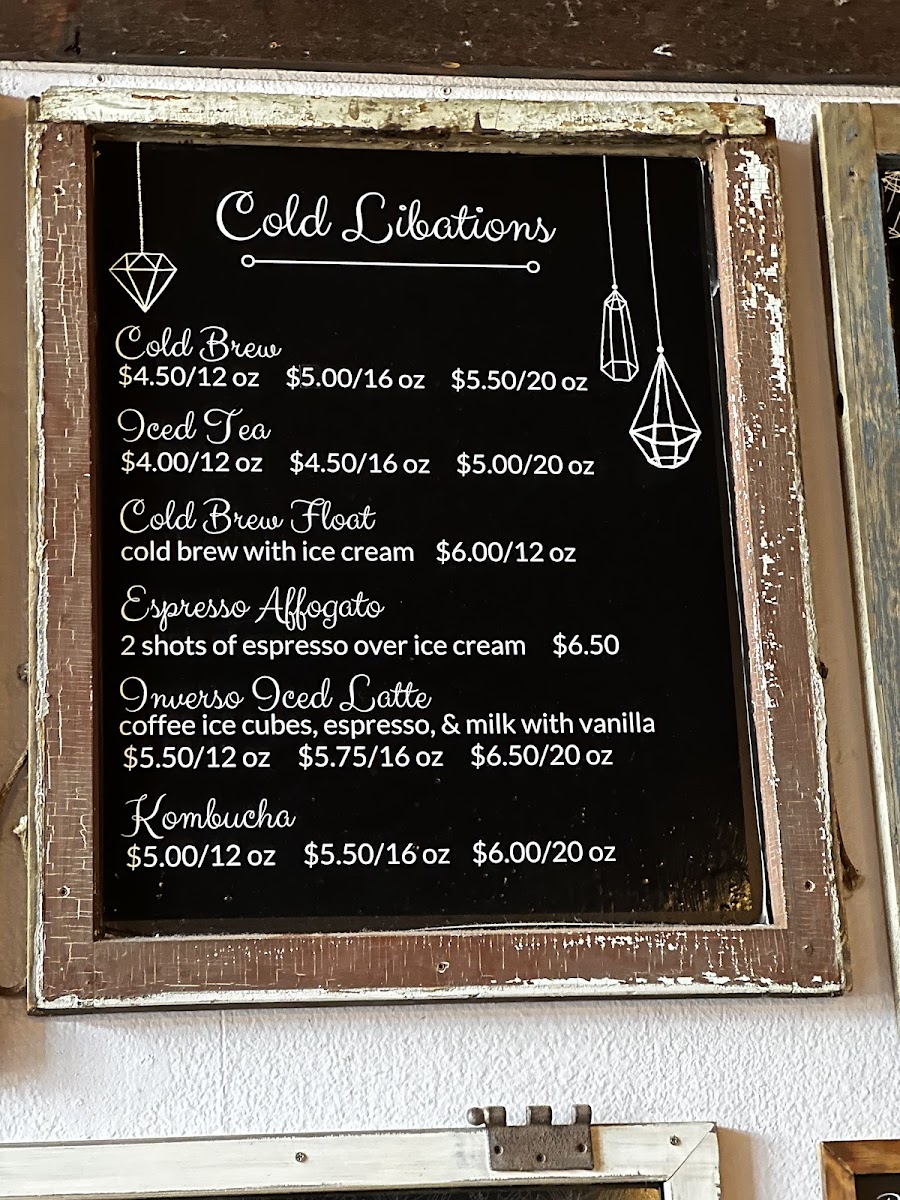 Cold Libations
Cold Brew
$4.50/12 oz $5.00/16 oz $5.50/20 oz
Iced Tea
$4.00/12 oz $4.50/16 oz $5.00/20 oz
Cold Brew Float
cold brew with ice cream $6.00/12 oz
Espresso Affogato
2 shots of espresso over ice cream $6.50
Inverso Iced Latte
coffee ice cubes, espresso, & milk with vanilla
$5.50/12 oz $5.75/16 oz $6.50/20 oz
Kombucha
$5.00/12 oz $5.50/16 oz $6.00/20 oz